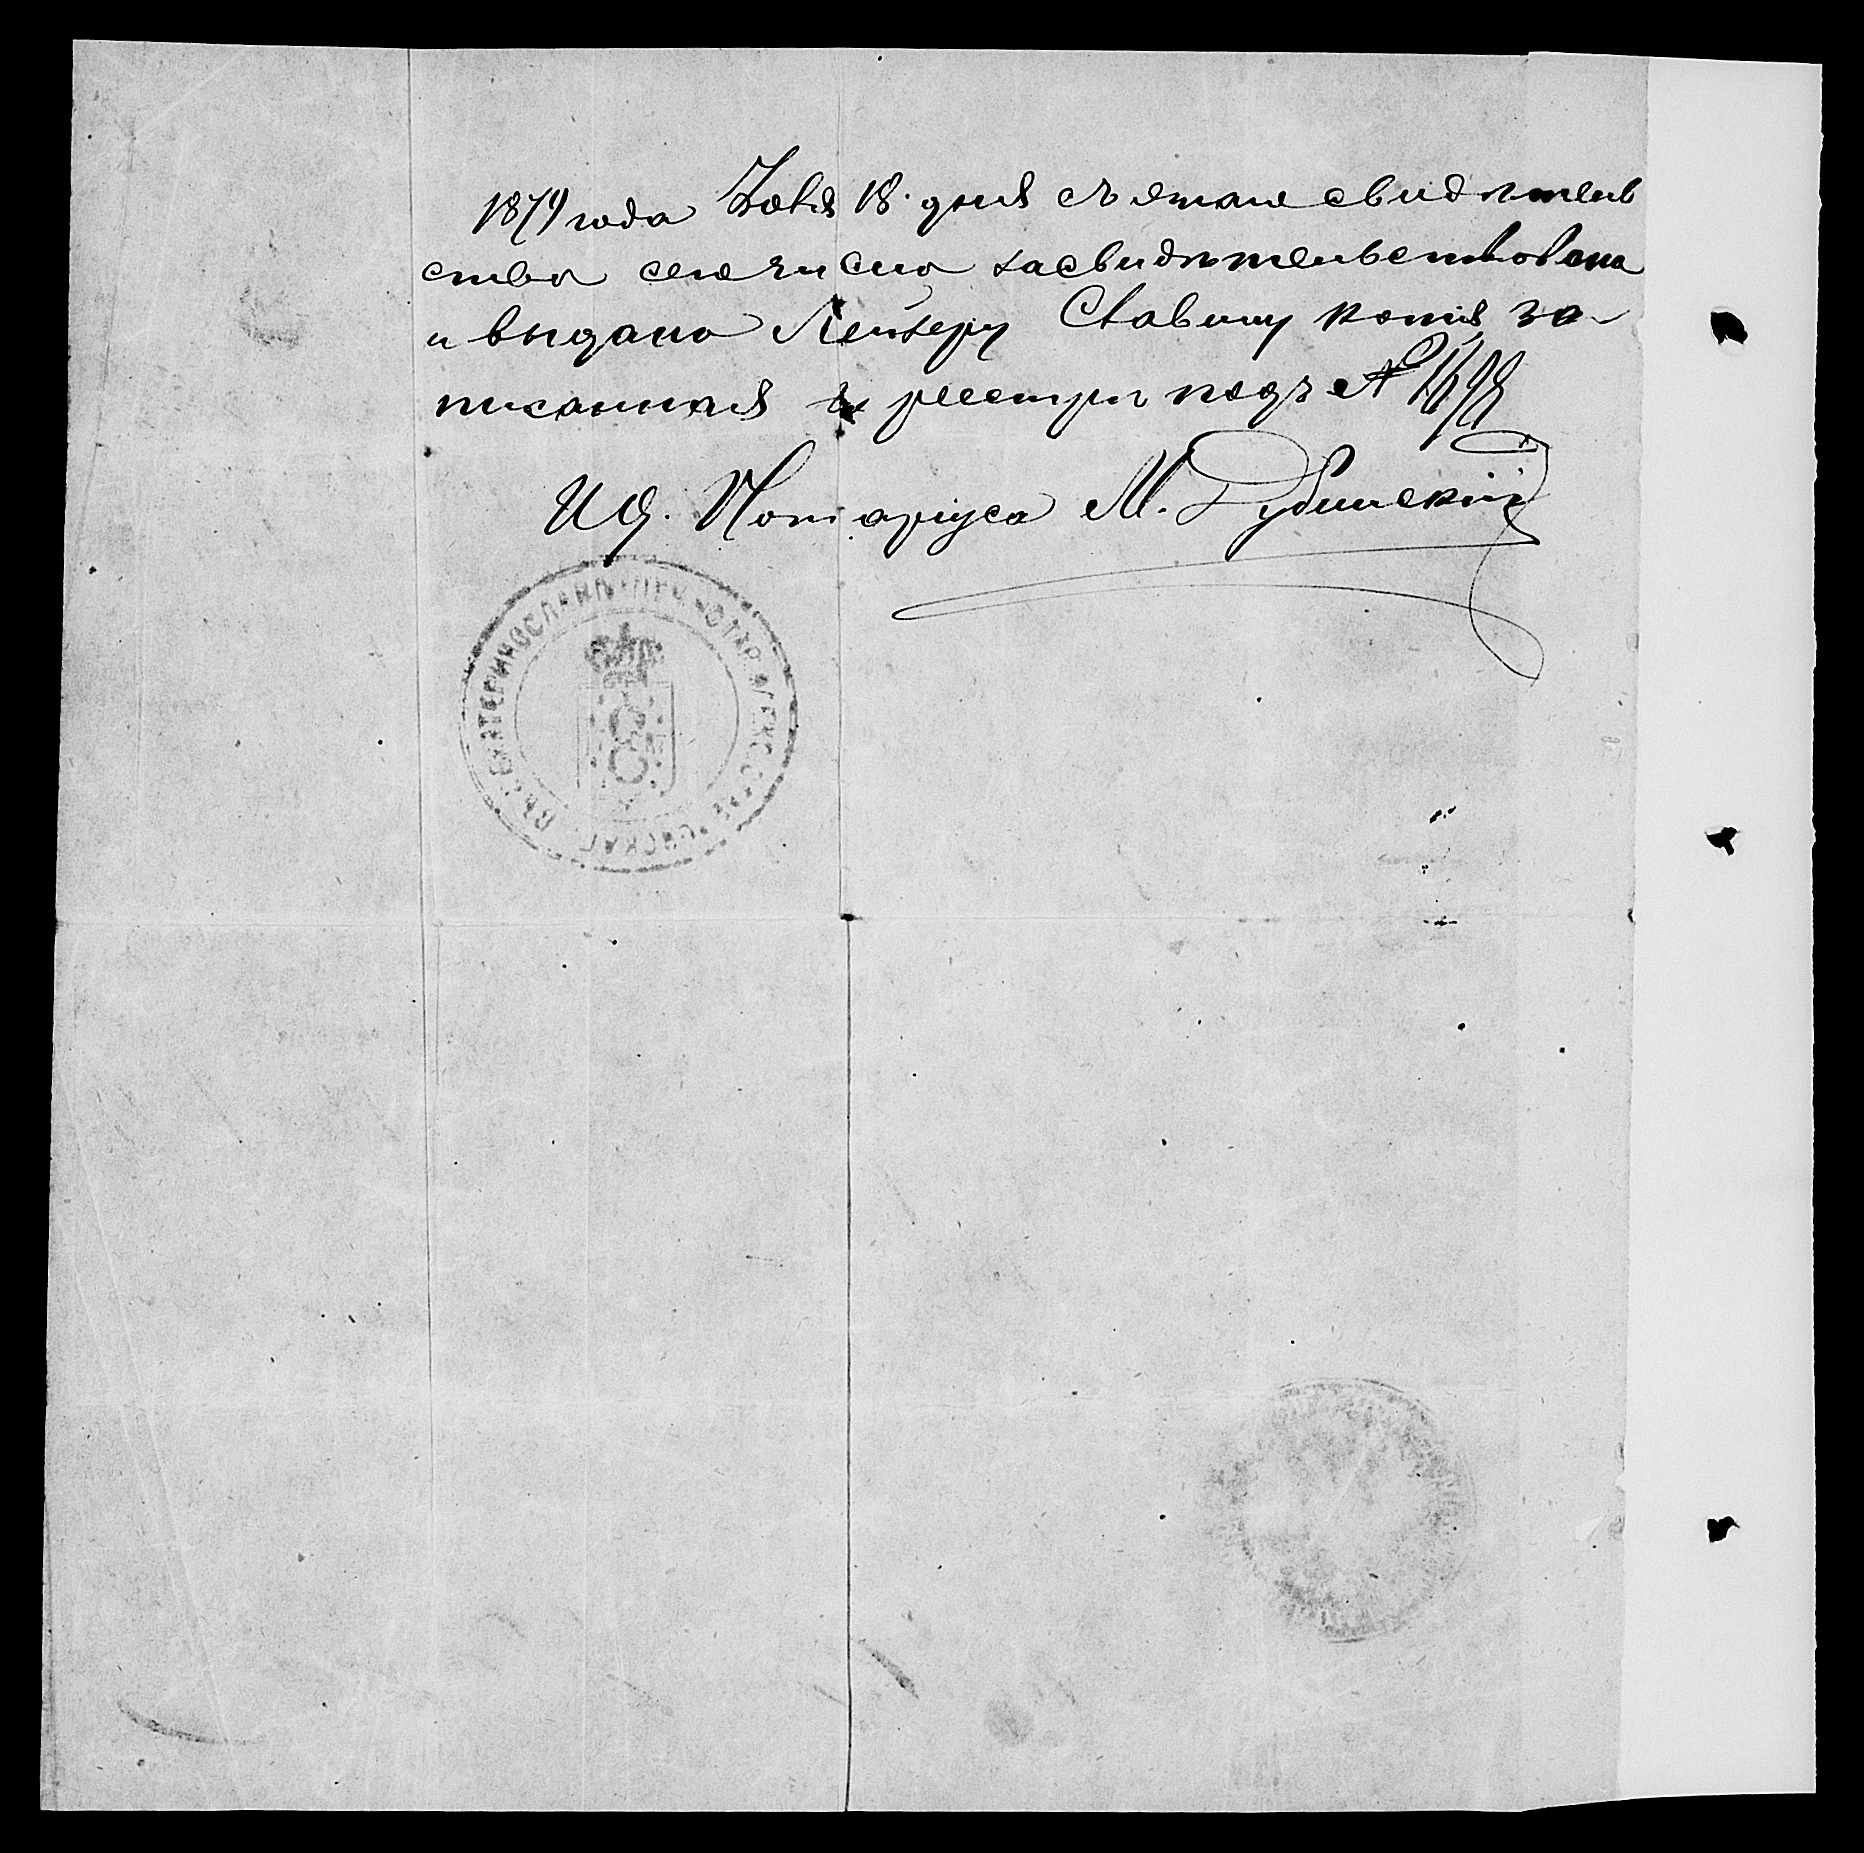 1879 года Іюля 18. дня съ этаго свидѣтель
ства сего числа засвидѣтельствована
и выдана Лейзеру Славину копія за-
писанная въ реестръ подъ №
И. д. Нотаріуса М. Дубинскій